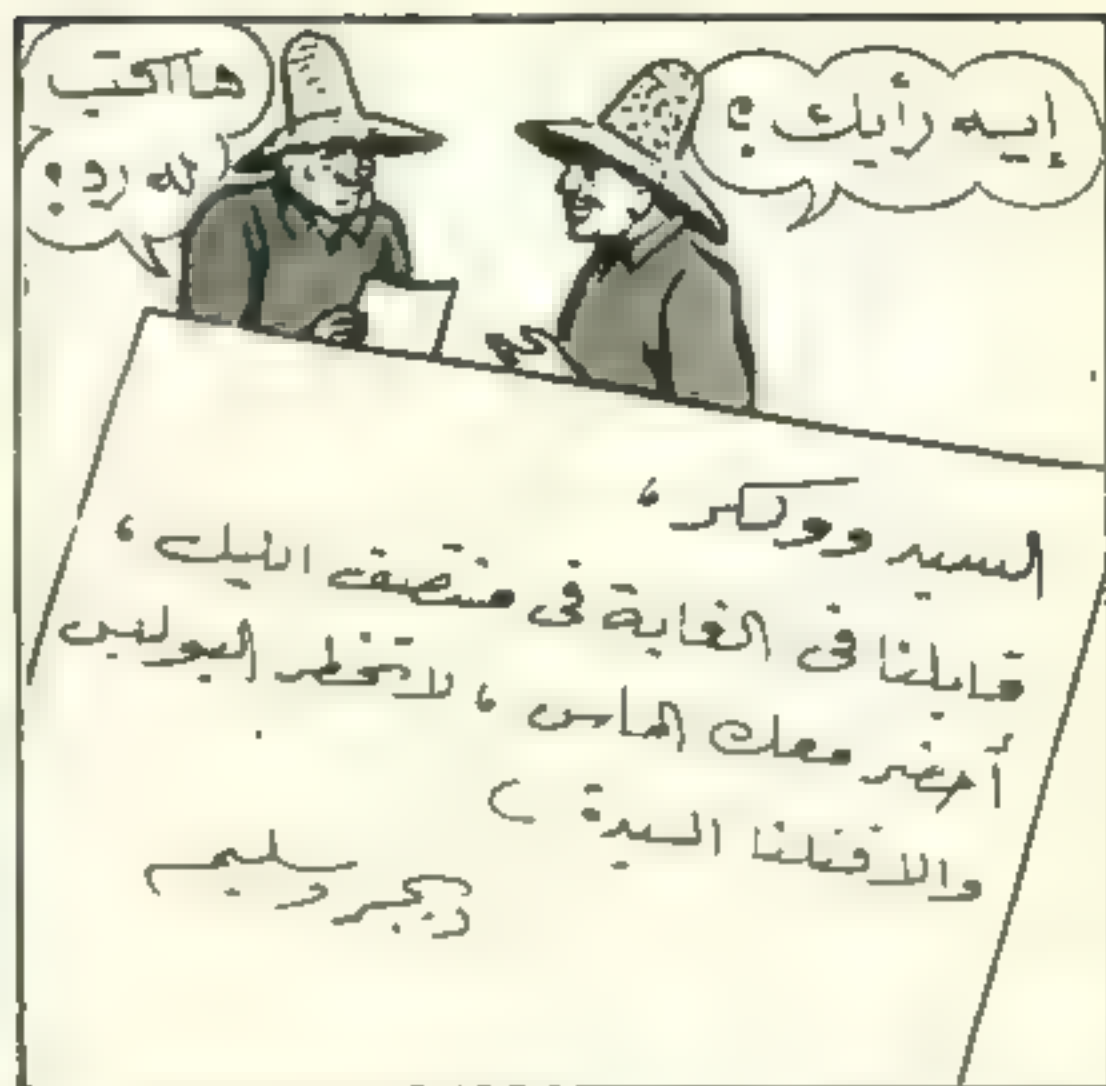 إيه رأيك؟
هااكتب
له رد؟
السيد ووكر،
قابلنا فى الغابة فى منتصف الليل،
أحضر معك الماس، لا تخطر البوليس
والا قتلنا السيدة
وسليم